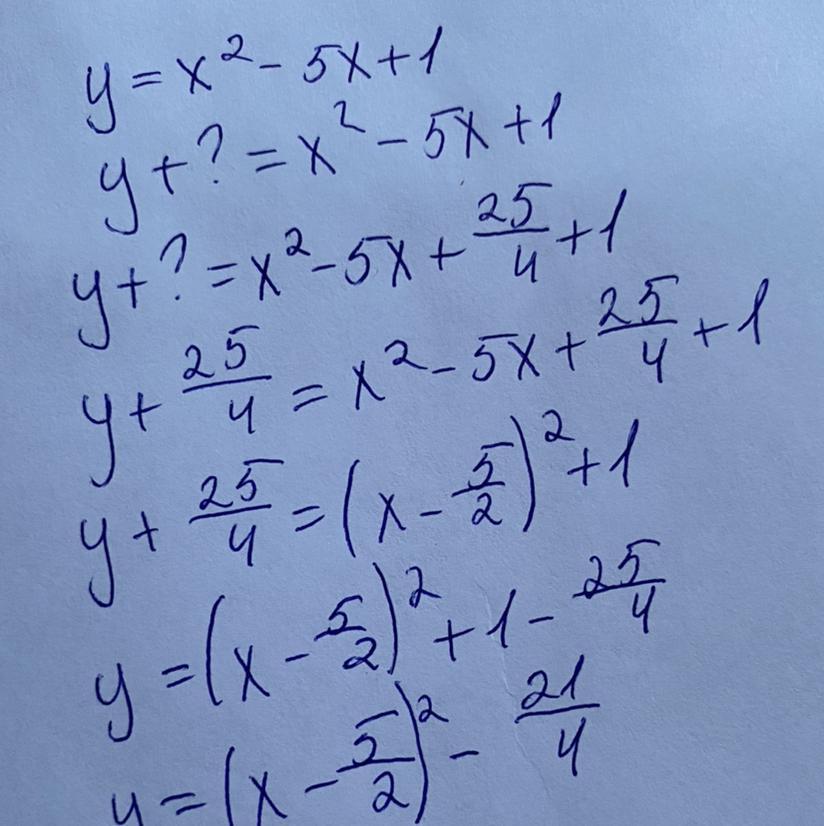 y = x² - 5x + 1
y + ? = x² - 5x + 1
y + ? = x² - 5x + 25/4 + 1
y + 25/4 = x² - 5x + 25/4 + 1
y + 25/4 = (x - 5/2)² + 1
y = (x - 5/2)² + 1 - 25/4
y = (x - 5/2)² - 21/4